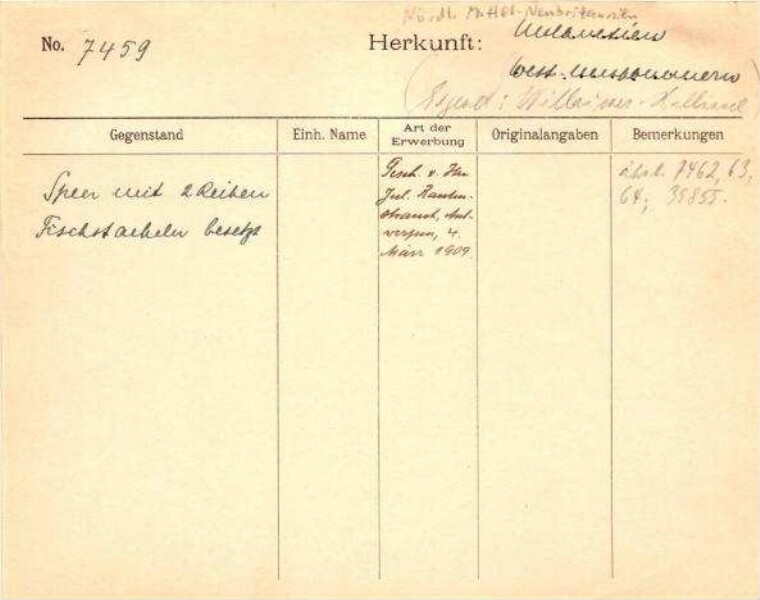 Nördl. Mittel-Neubritannien
No. 7459
Herkunft: Melanesien
West-Neupommern
(Gegend: Willaumez-Halbinsel)
Gegenstand Einh. Name Art der Erwerbung Originalangaben Bemerkungen
Speer mit 2 Reihen
Fischstacheln besetzt
Gesch. v. Hrn
Jul. Rauten-
strauch, Ant-
werpen, 4.
März 1909.
ähnl. 7462, 63,
64; 35855.